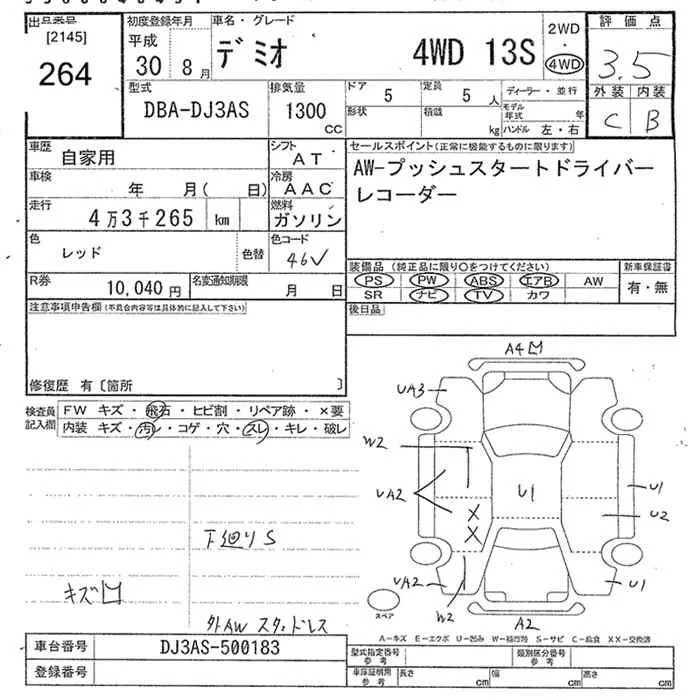 出品番号
[2145]
264
初度登録年月
平成
30 8月
車名・グレード
デミオ 4WD 13S
2WD
・
4WD
評価点
3.5
外装 内装
C B
型式
DBA-DJ3AS
排気量
1300
CC
ドア
5
定員
5 人
形状
積載
kg
ディーラー・並行
モデル年式 年
ハンドル 左・右
車歴
自家用
シフト
AT
車検
年 月( 日)
冷房
AAC
走行
4万3千265 km
燃料
ガソリン
色
レッド
色替
色コード
46V
R券
10,040円
名変通知期限
月 日
セールスポイント(正常に機能するものに限ります)
AW-プッシュスタートドライバー
レコーダー
装備品 (純正品に限り○をつけてください)
PS PW ABS エアB AW
SR ナビ TV カワ
新車保証書
有・無
後日品
注意事項申告欄(不具合内容等は具体的に記入して下さい)
修復歴 有〔箇所 〕
検査員
記入欄
FW キズ・飛石・ヒビ割・リペア跡・×要
内装 キズ・汚レ・コゲ・穴・スレ・キレ・破レ
下廻りS
キズ凹
外AW スタッドレス
A4凹
UA3
W2
UA2
U1
U1
U2
X
X
UA2
W2
U1
A2
スペア
A-キズ E-エクボ U-凹み W-補修跡 S-サビ C-腐食 XX-交換済
車台番号
DJ3AS-500183
登録番号
型式指定番号
参考
類別区分番号
参考
車庫証明用
参考
長さ cm
幅 cm
高さ cm